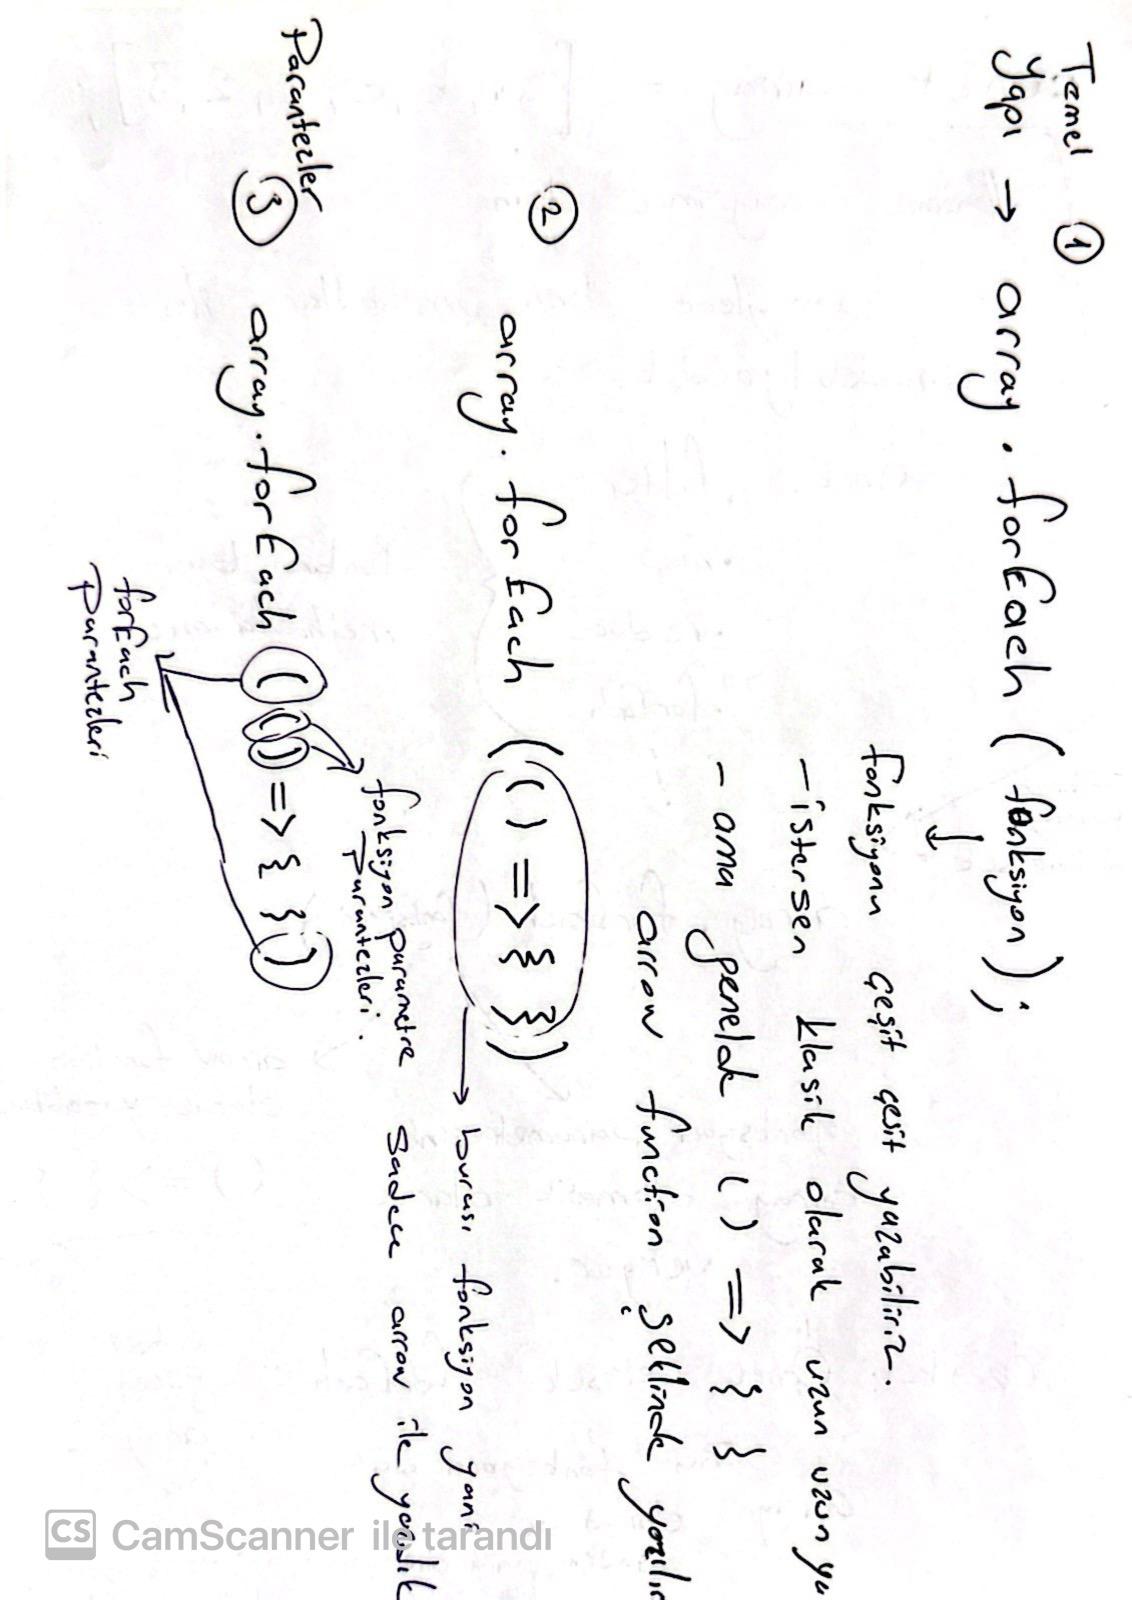 Temel ①
yapı → array . forEach ( fonksiyon ) ;
↓
fonksiyonu çeşit çeşit yazabiliriz.
- istersen klasik olarak uzun uzun
- ama genelde ( ) => { }
arrow function şeklinde yazılır
②
array. forEach ( ( ) => { } )
→ burası fonksiyon yani
sadece arrow ile yazdık
Parantezler
③
array.forEach ( ( ) => { } )
fonksiyon parametre
parantezleri.
forEach
parantezleri
CS CamScanner ile tarandı